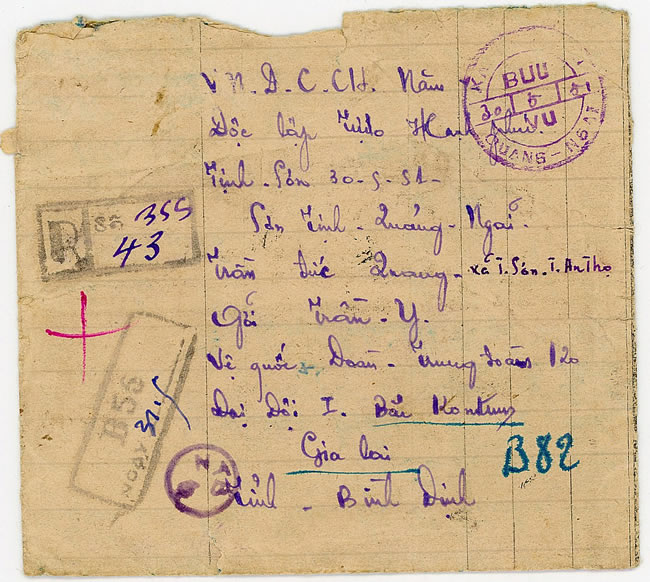 V N. D. C. CH. Năm
Độc lập Tự do Hạnh
BƯU
30 5 51
VỤ
QUANG-NGAI
Tịnh-Sơn 30-5-51-
Sơn Tịnh-Quảng-Ngãi.
R Số 355
43
Trần Đức Quang-xã T. Sơn. T. An Thọ
Gởi Trần-Y.
Vệ quốc Đoàn-Trung đoàn 120
Đại Đội I. Bắc Kontum
Gia lai
B82
Tỉnh-Bình Định
B56
NGÀY 31-5